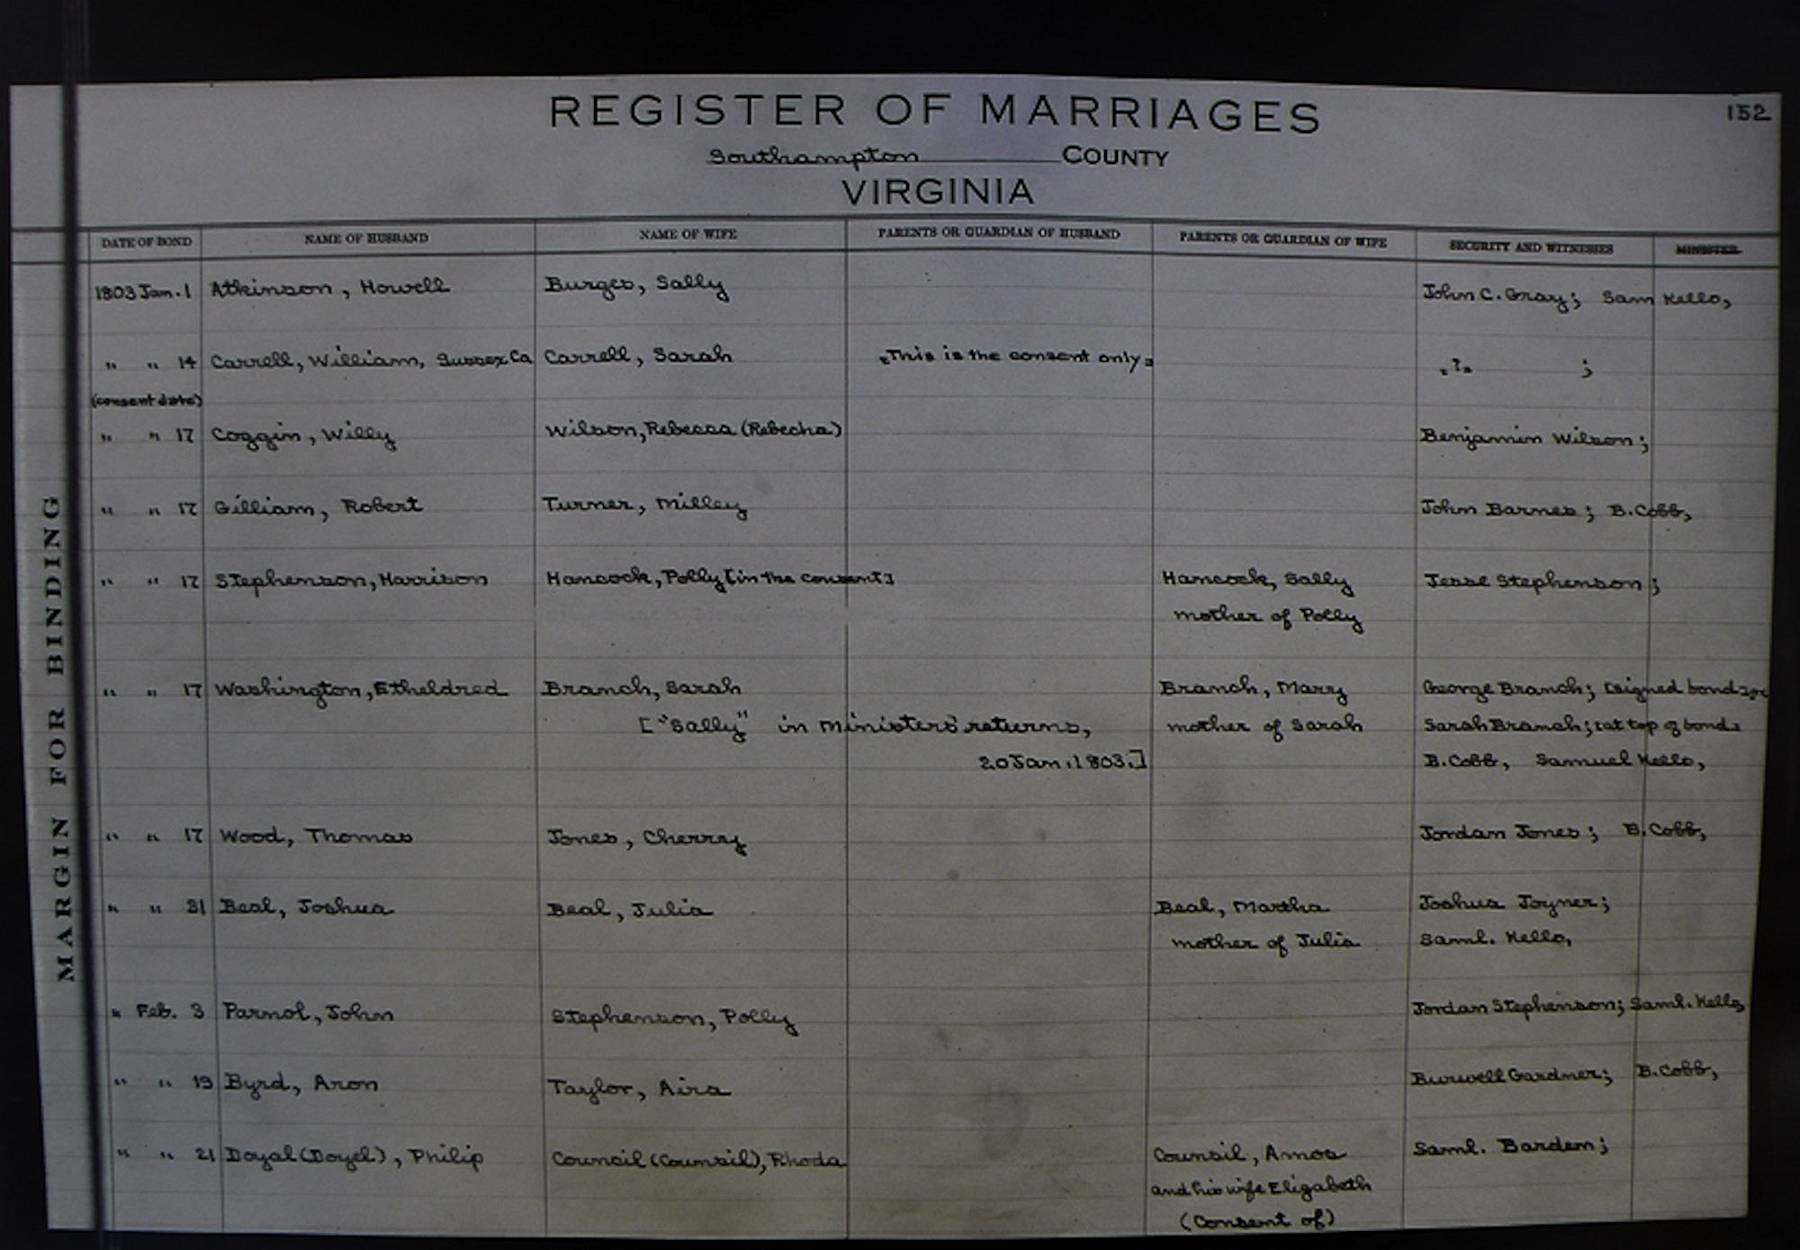 REGISTER OF MARRIAGES
152
Southampton COUNTY
VIRGINIA
DATE OF BOND NAME OF HUSBAND NAME OF WIFE PARENTS OR GUARDIAN OF HUSBAND PARENTS OR GUARDIAN OF WIFE SECURITY AND WITNESSES MINISTER
1803 Jan. 1 Atkinson, Howell Burges, Sally John C. Gray; Sam Kello,
" " 14 Carrell, William, Sussex Co Carrell, Sarah "This is the consent only" "?" ;
(consent date)
" " 17 Coggin, Willy Wilson, Rebecca (Rebecha) Benjamin Wilson;
" " 17 Gilliam, Robert Turner, Milley John Barnes; B. Cobb,
" " 17 Stephenson, Harrison Hancock, Polly [in the consent] Hancock, Sally Jesse Stephenson;
mother of Polly
" " 17 Washington, Etheldred Branch, Sarah Branch, Mary George Branch; [signed bond]
["Sally" in ministers' returns, mother of Sarah Sarah Branch; [at top of bond]
20 Jan. 1803.] B. Cobb, Samuel Kello,
" " 17 Wood, Thomas Jones, Cherry Jordan Jones; B. Cobb,
" " 31 Beal, Joshua Beal, Julia Beal, Martha Joshua Joyner;
mother of Julia Saml. Kello,
" Feb. 3 Parnol, John Stephenson, Polly Jordan Stephenson; Saml. Kello,
" " 19 Byrd, Aron Taylor, Aira Burwell Gardner; B. Cobb,
" " 21 Doyal (Doyel), Philip Council (Counsil), Rhoda Counsil, Amos Saml. Bardem;
and his wife Elizabeth
(Consent of)
MARGIN FOR BINDING